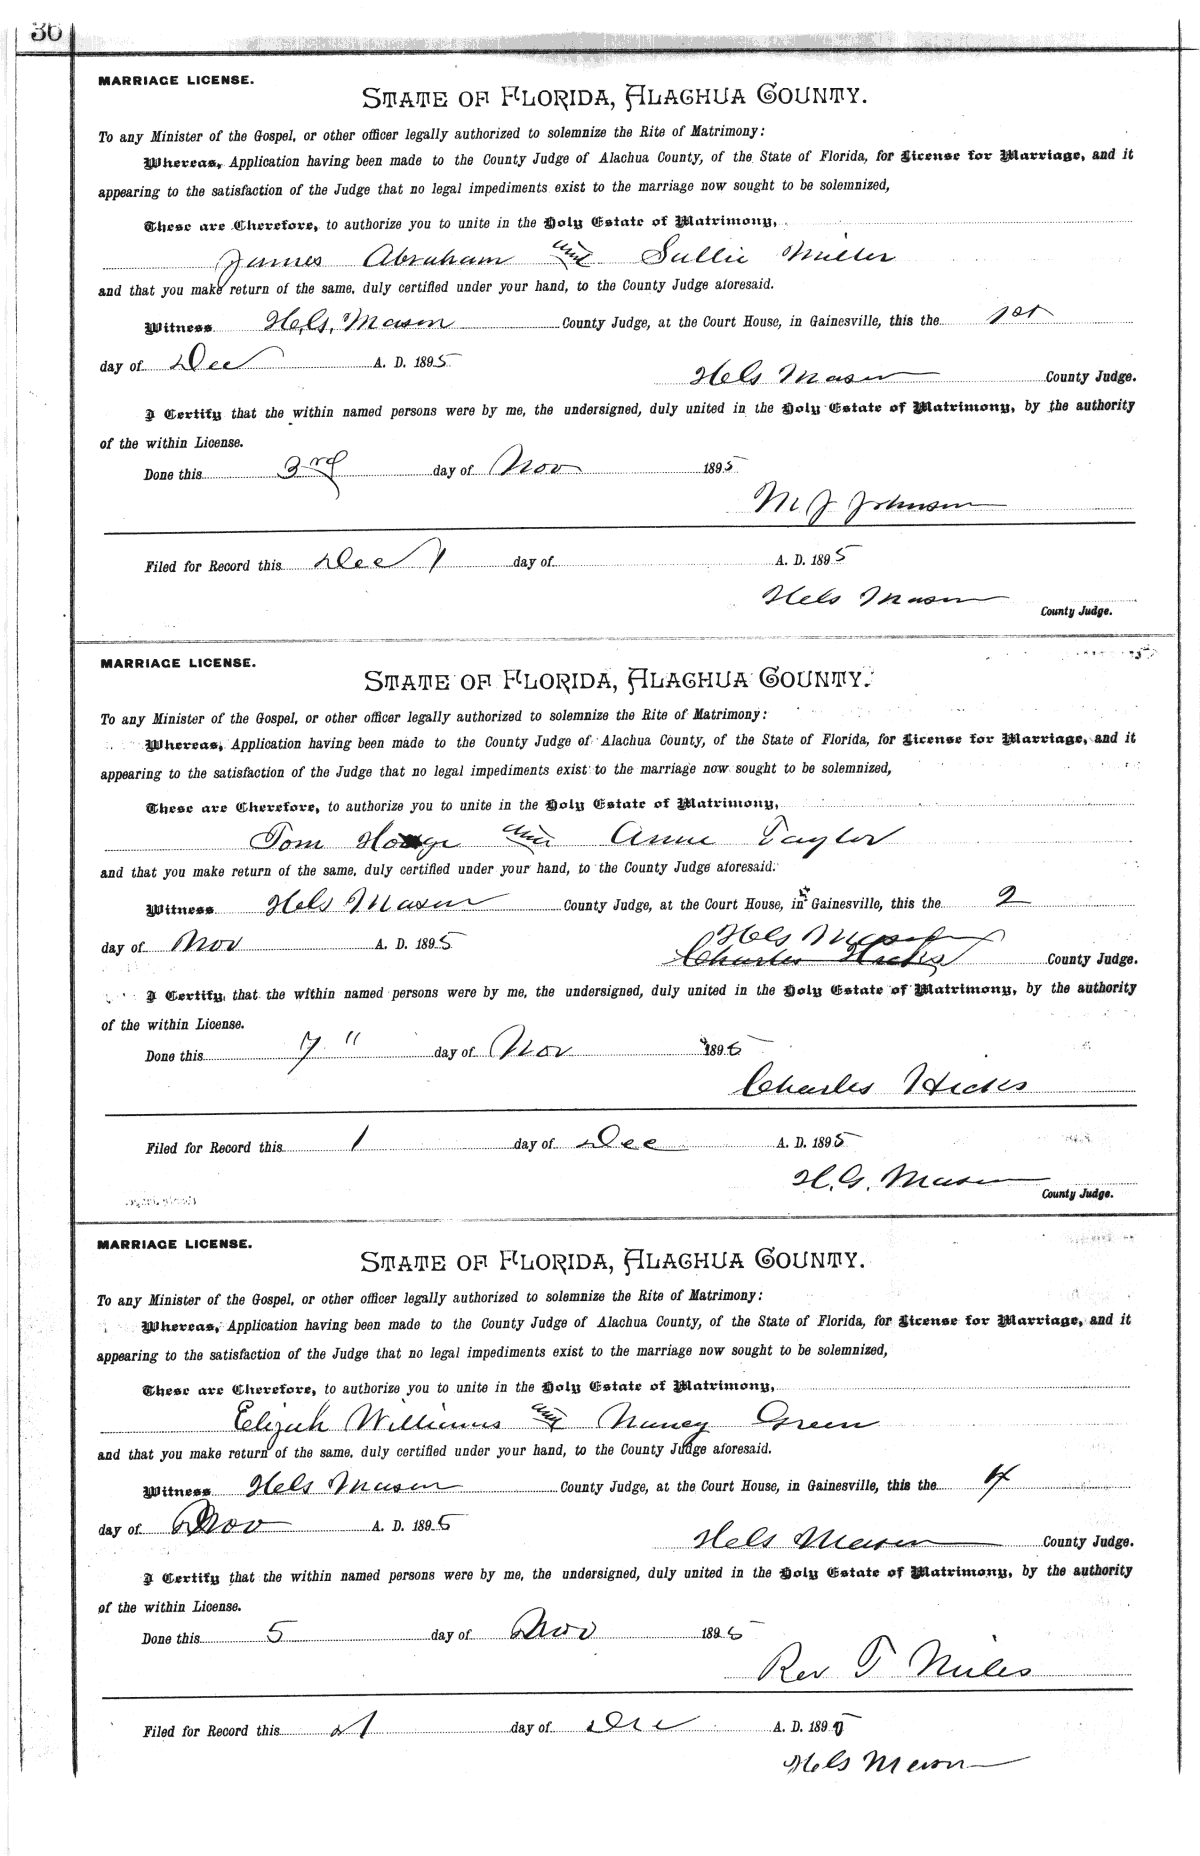 36
MARRIAGE LICENSE.
STATE OF FLORIDA, ALACHUA COUNTY.
To any Minister of the Gospel, or other officer legally authorized to solemnize the Rite of Matrimony:
Whereas, Application having been made to the County Judge of Alachua County, of the State of Florida, for License for Marriage, and it
appearing to the satisfaction of the Judge that no legal impediments exist to the marriage now sought to be solemnized,
These are Therefore, to authorize you to unite in the Holy Estate of Matrimony,
James Abraham and Sallie Miller
and that you make return of the same, duly certified under your hand, to the County Judge aforesaid.
Witness Mason County Judge, at the Court House, in Gainesville, this the 1st
day of Dec A. D. 1895
Mason County Judge.
I Certify that the within named persons were by me, the undersigned, duly united in the Holy Estate of Matrimony, by the authority
of the within License.
Done this 3rd day of Nov 1895
M J Johnson
Filed for Record this Dec 1 day of A. D. 1895
Mason
County Judge.
MARRIAGE LICENSE.
STATE OF FLORIDA, ALACHUA COUNTY.
To any Minister of the Gospel, or other officer legally authorized to solemnize the Rite of Matrimony:
Whereas, Application having been made to the County Judge of Alachua County, of the State of Florida, for License for Marriage, and it
appearing to the satisfaction of the Judge that no legal impediments exist to the marriage now sought to be solemnized,
These are Therefore, to authorize you to unite in the Holy Estate of Matrimony,
Tom and Anne Taylor
and that you make return of the same, duly certified under your hand, to the County Judge aforesaid.
Witness Mason County Judge, at the Court House, in Gainesville, this the 2
day of Nov A. D. 1895
Mason
Charles Hicks County Judge.
I Certify, that the within named persons were by me, the undersigned, duly united in the Holy Estate of Matrimony, by the authority
of the within License.
Done this 7" day of Nov 1895
Charles Hicks
Filed for Record this 1 day of Dec A. D. 1895
H. G. Mason
County Judge.
MARRIAGE LICENSE.
STATE OF FLORIDA, ALACHUA COUNTY.
To any Minister of the Gospel, or other officer legally authorized to solemnize the Rite of Matrimony:
Whereas, Application having been made to the County Judge of Alachua County, of the State of Florida, for License for Marriage, and it
appearing to the satisfaction of the Judge that no legal impediments exist to the marriage now sought to be solemnized,
These are Therefore, to authorize you to unite in the Holy Estate of Matrimony,
Elizah Williams and Nancy Green
and that you make return of the same, duly certified under your hand, to the County Judge aforesaid.
Witness Mason County Judge, at the Court House, in Gainesville, this the 4
day of Nov A. D. 1895
Mason County Judge.
I Certify that the within named persons were by me, the undersigned, duly united in the Holy Estate of Matrimony, by the authority
of the within License.
Done this 5 day of Nov 1895
Rev T Miles
Filed for Record this 1 day of Dec A. D. 1895
Mason